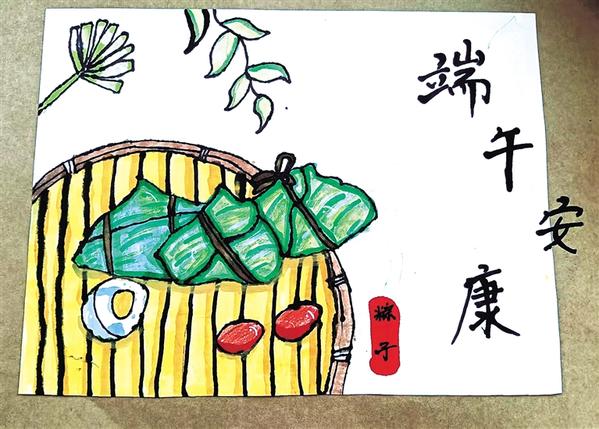 端午安康
粽子